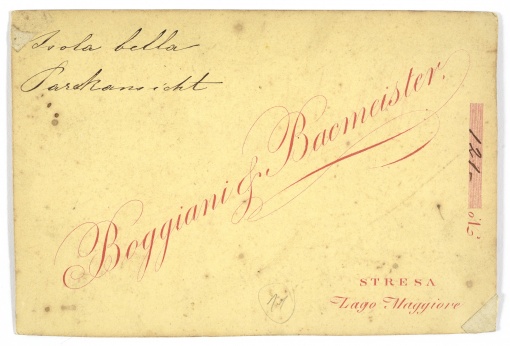 Isola bella
Parkansicht
Boggiani & Bacmeister.
STRESA
Lago Maggiore
No 121